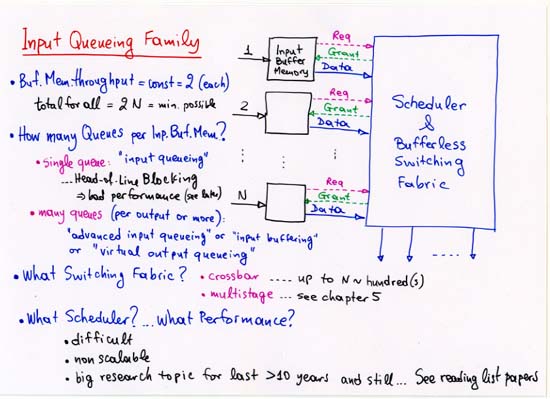 Input Queueing Family
• Buf. Mem. throughput = const = 2 (each)
total for all = 2 N = min. possible
• How many Queues per Inp. Buf. Mem.?
• single queue: "input queueing"
... Head-of-Line Blocking
⇒ bad performance (see later)
• many queues (per output or more):
"advanced input queueing" or "input buffering"
or "virtual output queueing"
• What Switching Fabric?
• crossbar .... up to N ~ hundred(s)
• multistage ... see chapter 5
• What Scheduler? ... What Performance?
• difficult
• non scalable
• big research topic for last >10 years and still... See reading list papers
1
Input
Buffer
Memory
Req
Grant
Data
2
Req
Grant
Data
N
Req
Grant
Data
Scheduler
&
Bufferless
Switching
Fabric